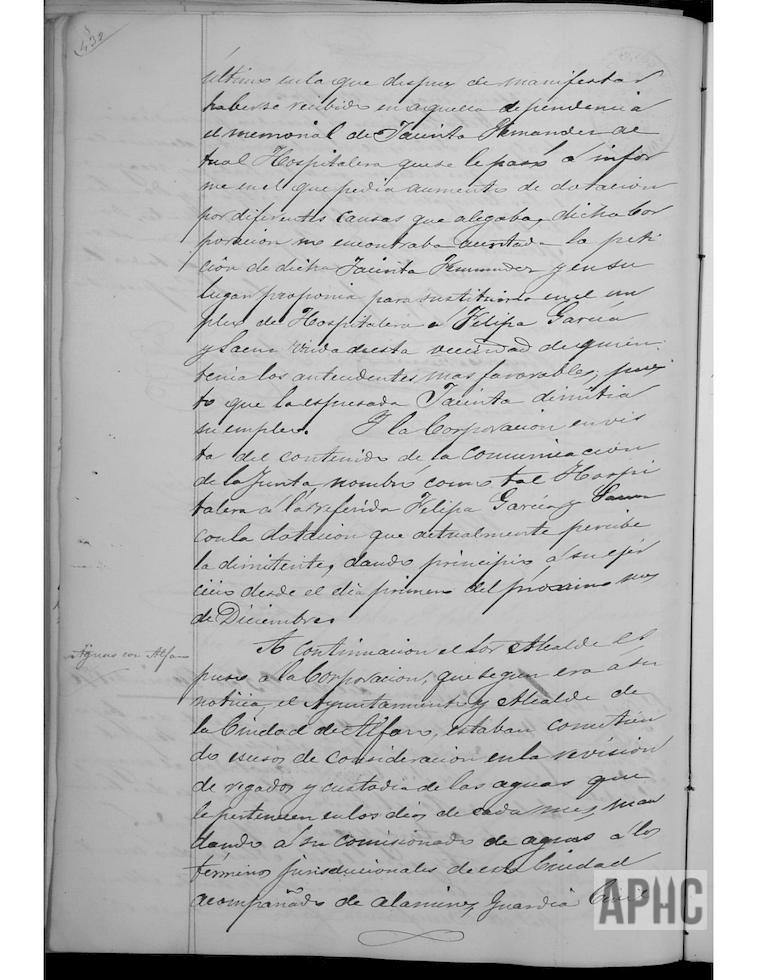 último en la que despues de manifestar
haberse recibido en aquella dependencia
el memorial de Jacinta Hernandez ac
tual Hospitalera que se le pasó á infor
me en el que pedia aumento de dotacion
por diferentes causas que alegaba, dicha Cor
poracion no encontraba acertada la peti
ción de dicha Jacinta Hernandez y en su
lugar proponia para sustituirla en el em
pleo de Hospitalera á Felipa Garcia
y Saenz de esta vecindad de quien
tenia los antecedentes mas favorables, pues
to que la espresada Jacinta dimitia
su empleo. Y la Corporacion en vis
ta del contenido de la comunicación
de la Junta, nombró como tal Hospi
talera á la referida Felipa García y Saenz
con la dotacion que actualmente percibe
la dimitente, dando principio á su ejer
cicio desde el dia primero del próximo mes
de Diciembre.
Aguas con Alfaro
A continuacion el Sor Alcalde es
puso a la Corporacion, que segun era á su
noticia, el Ayuntamiento y Alcalde de
la Ciudad de Alfaro, estaban cometien
do escesos de consideracion en la revision
de regados y custodia de las aguas que
le pertenecen en los dias de cada mes, man
dando á su comisionado de aguas á los
términos jurisdiccionales de esta Ciudad
acompañado de alamines, Guardia Civil
APHC